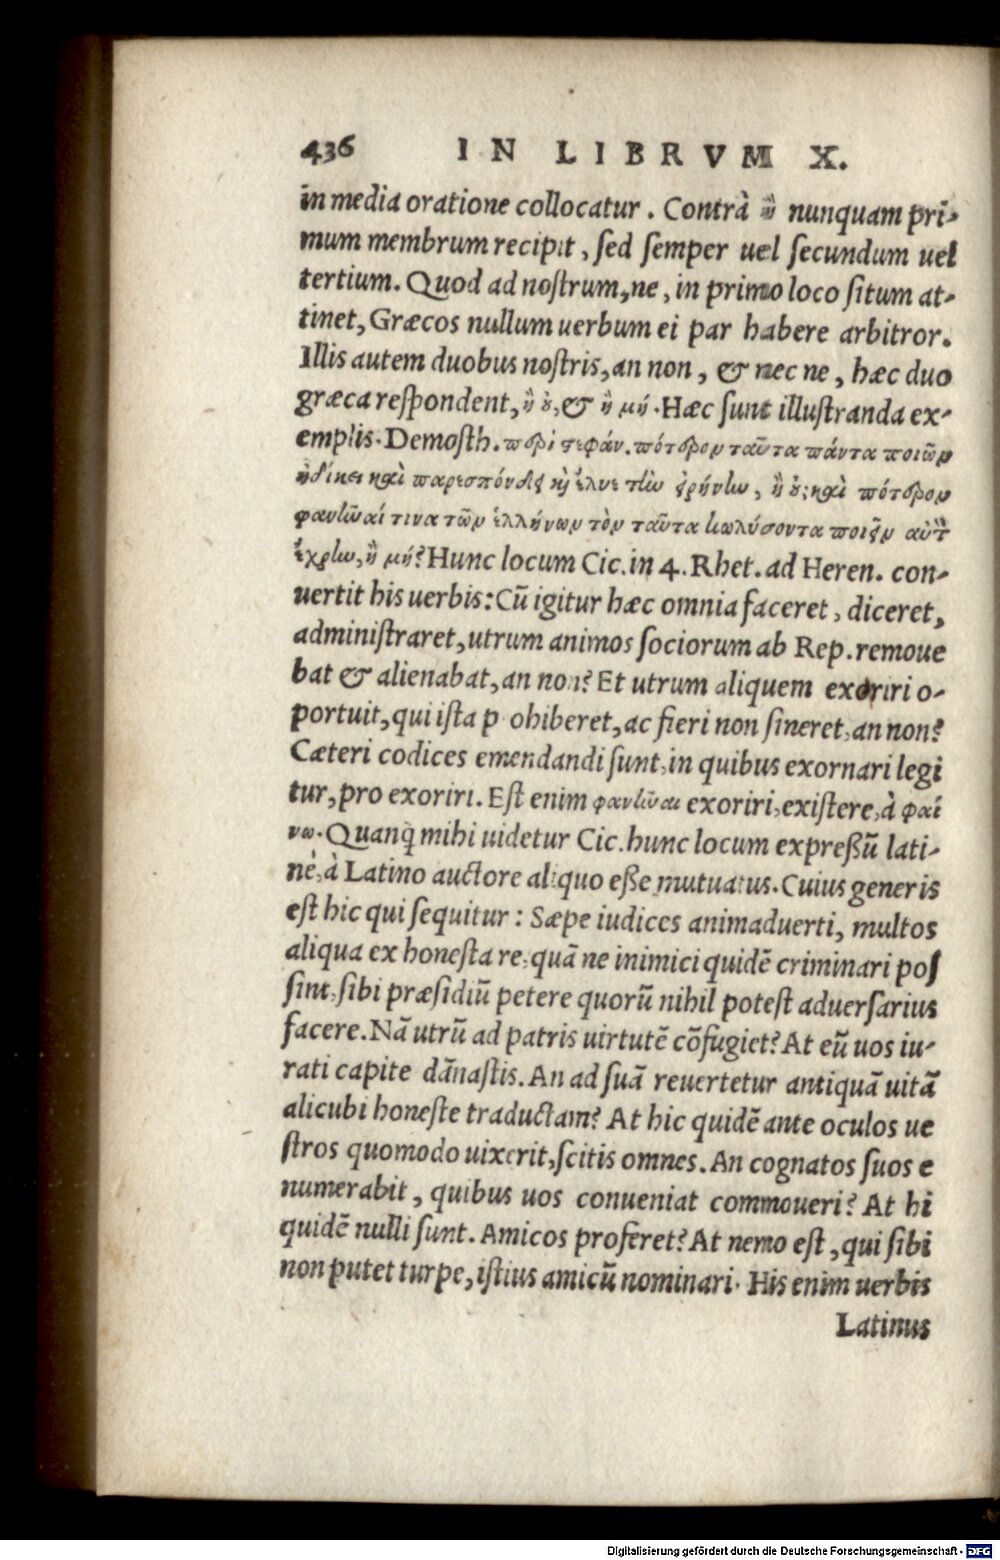 436 IN LIBRVM X.
in media oratione collocatur. Contrà ἢ nunquam pri-
mum membrum recipit, ſed ſemper uel ſecundum uel
tertium. Quod ad noſtrum, ne, in primo loco ſitum at-
tinet, Græcos nullum uerbum ei par habere arbitror.
Illis autem duobus noſtris, an non, & nec ne, hæc duo
græca reſpondent, ἢ ὀ, & ἢ μή. Hæc ſunt illuſtranda ex-
emplis. Demoſth. περὶ στεφάν. πότερον ταῦτα πάντα ποιῶν
ἠδίκει καὶ παρεσπόνδει καὶ ἔλυε τὴν εἰρήνην, ἢ ὄ; καὶ πότερον
φανῆναί τινα τῶν ἑλλήνων τὸν ταῦτα κωλύσοντα ποιεῖν αὐτ
ἐχρῆν, ἢ μή? Hunc locum Cic. in 4. Rhet. ad Heren. con-
uertit his uerbis: Cū igitur hæc omnia faceret, diceret,
adminiſtraret, utrum animos ſociorum ab Rep. remoue
bat & alienabat, an non? Et utrum aliquem exoriri o-
portuit, qui iſta p ohiberet, ac fieri non ſineret, an non?
Cæteri codices emendandi ſunt, in quibus exornari legi
tur, pro exoriri. Eſt enim φανῆναι exoriri, exiſtere, à φαί
νω. Quanq̄ mihi uidetur Cic. hunc locum expreßū lati-
nè, à Latino auctore aliquo eße mutuatus. Cuius generis
eſt hic qui ſequitur: Sæpe iudices animaduerti, multos
aliqua ex honeſta re, quā ne inimici quidē criminari poſ
ſint, ſibi præſidiū petere quorū nihil poteſt aduerſarius
facere. Nā utrū ad patris uirtutē cōfugiet? At eū uos iu-
rati capite dānaſtis. An ad ſuā reuertetur antiquā uitā
alicubi honeſte traductam? At hic quidē ante oculos ue
ſtros quomodo uixerit, ſcitis omnes. An cognatos ſuos e
numerabit, quibus uos conueniat commoueri? At hi
quidē nulli ſunt. Amicos proferet? At nemo eſt, qui ſibi
non putet turpe, iſtius amicū nominari. His enim uerbis
Latinus
Digitalisierung gefördert durch die Deutsche Forschungsgemeinschaft - DFG